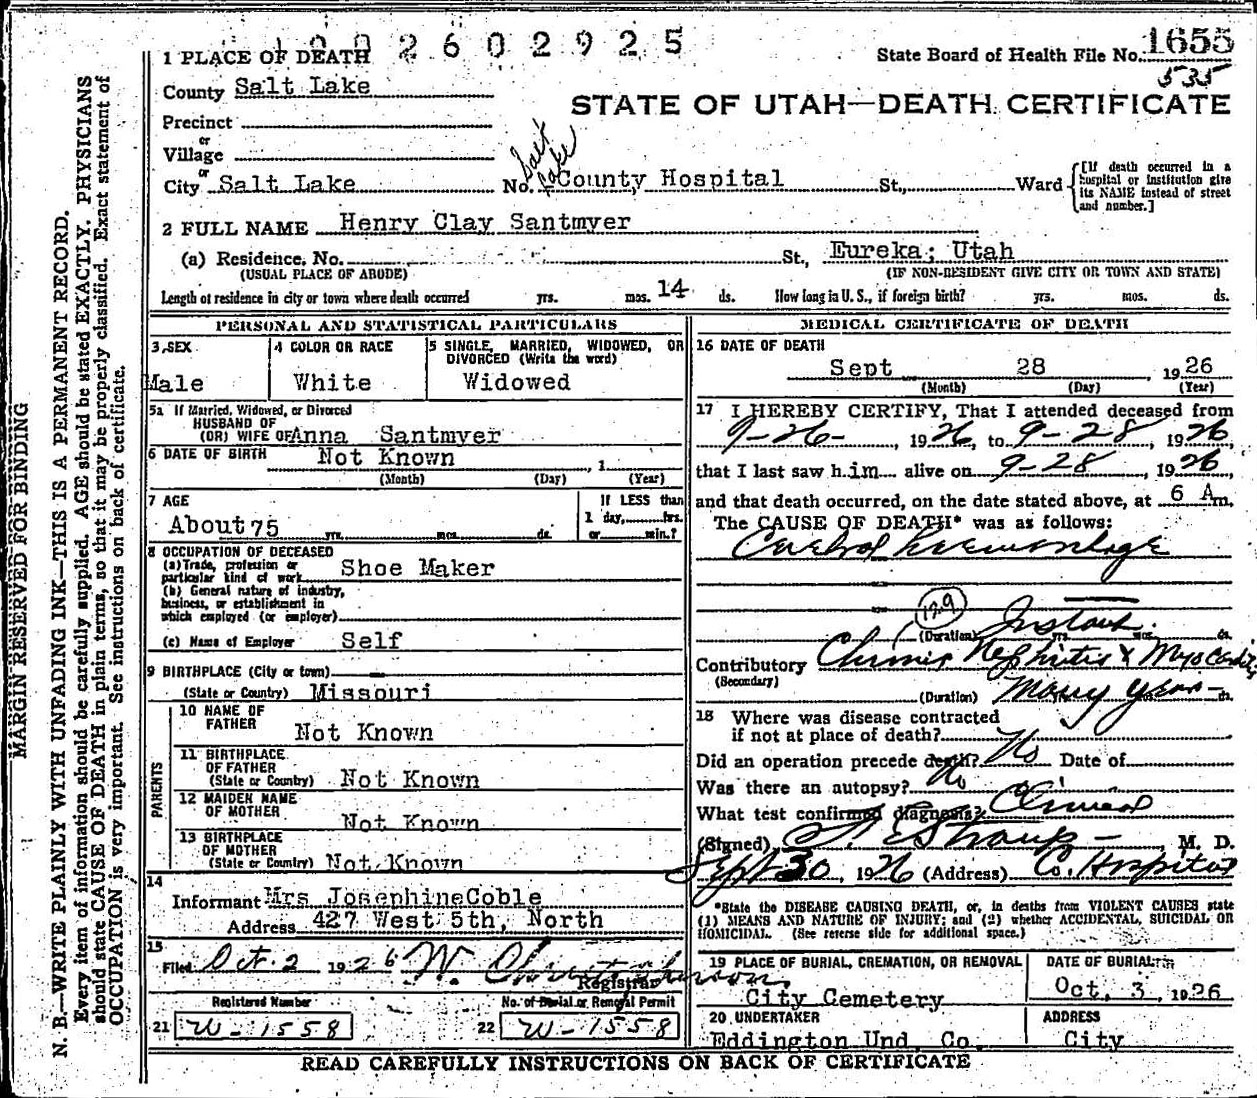 1002602925
State Board of Health File No. 1655
535
STATE OF UTAH—DEATH CERTIFICATE
1 PLACE OF DEATH
County Salt Lake
Precinct
or
Village
or
City Salt Lake No. Salt Lake County Hospital St., Ward
[If death occurred in a hospital or institution give its NAME instead of street and number.]
2 FULL NAME Henry Clay Santmyer
(a) Residence, No. St., Eureka; Utah
(USUAL PLACE OF ABODE) (IF NON-RESIDENT GIVE CITY OR TOWN AND STATE)
Length of residence in city or town where death occurred yrs. mos. 14 ds. How long in U. S., if foreign birth? yrs. mos. ds.
PERSONAL AND STATISTICAL PARTICULARS
3 SEX
Male
4 COLOR OR RACE
White
5 SINGLE, MARRIED, WIDOWED, OR
DIVORCED (Write the word)
Widowed
5a If Married, Widowed, or Divorced
HUSBAND OF
(OR) WIFE OF Anna Santmyer
6 DATE OF BIRTH Not Known , 1
(Month) (Day) (Year)
7 AGE
About 75 yrs. mos. ds.
If LESS than
1 day, hrs.
or min.?
8 OCCUPATION OF DECEASED
(a) Trade, profession or
particular kind of work Shoe Maker
(b) General nature of industry,
business, or establishment in
which employed (or employer)
(c) Name of Employer Self
9 BIRTHPLACE (City or town)
(State or Country) Missouri
PARENTS
10 NAME OF
FATHER Not Known
11 BIRTHPLACE
OF FATHER
(State or Country) Not Known
12 MAIDEN NAME
OF MOTHER Not Known
13 BIRTHPLACE
OF MOTHER
(State or Country) Not Known
14
Informant Mrs Josephine Coble
Address 427 West 5th, North
15
Filed Oct. 2 1926 W. Christopherson
Registrar
Registered Number
21 W-1558
No. of Burial or Removal Permit
22 W-1558
MEDICAL CERTIFICATE OF DEATH
16 DATE OF DEATH
Sept 28 , 1926
(Month) (Day) (Year)
17 I HEREBY CERTIFY, That I attended deceased from
9-26- , 1926, to 9-28 , 1926
that I last saw him alive on 9-28 , 1926
and that death occurred, on the date stated above, at 6 Am.
The CAUSE OF DEATH* was as follows:
Cerebral haemorrhage
129
(Duration) Instant. yrs. mos. ds.
Contributory Chronic Nephritis & Myocarditis
(Secondary)
(Duration) Many years ds.
18 Where was disease contracted
if not at place of death?
Did an operation precede death? No Date of
Was there an autopsy? No
What test confirmed diagnosis? Clinical
(Signed) T. E. Straup M. D.
Sept 30, 1926 (Address) Co. Hospital
*State the DISEASE CAUSING DEATH, or, in deaths from VIOLENT CAUSES state
(1) MEANS AND NATURE OF INJURY; and (2) whether ACCIDENTAL, SUICIDAL OR
HOMICIDAL. (See reverse side for additional space.)
19 PLACE OF BURIAL, CREMATION, OR REMOVAL
City Cemetery
DATE OF BURIAL
Oct, 3 , 1926
20 UNDERTAKER
Eddington Und Co.
ADDRESS
City
READ CAREFULLY INSTRUCTIONS ON BACK OF CERTIFICATE
MARGIN RESERVED FOR BINDING
N. B.—WRITE PLAINLY WITH UNFADING INK—THIS IS A PERMANENT RECORD.
Every item of information should be carefully supplied. AGE should be stated EXACTLY. PHYSICIANS
should state CAUSE OF DEATH in plain terms, so that it may be properly classified. Exact statement of
OCCUPATION is very important. See instructions on back of certificate.